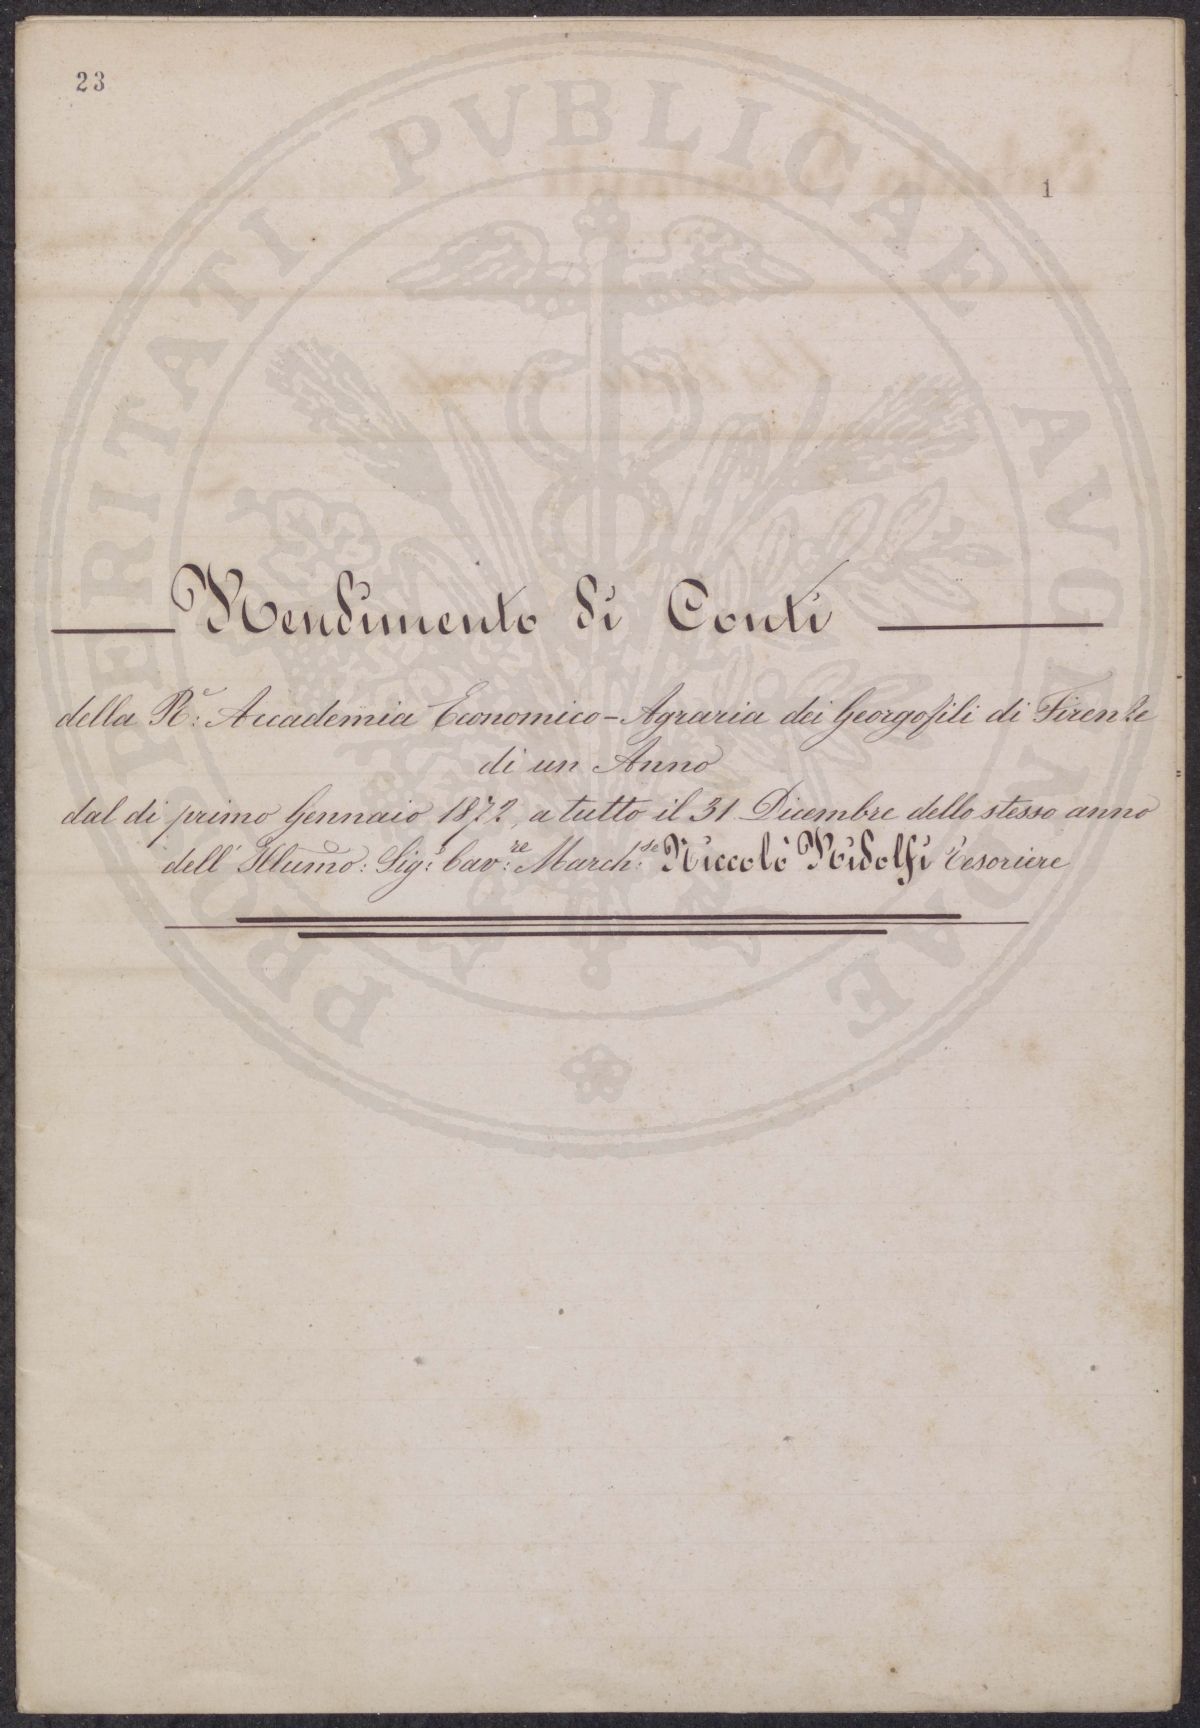 23
1
Rendimento di Conti
della R.e Accademia Economico-Agraria dei Georgofili di Firenze
di un Anno
dal di primo Gennaio 1872, a tutto il 31 Dicembre dello stesso anno
dell' Illumo: Sig.r Cav.re March.se Niccolò Ridolfi Tesoriere
PROSPERITATI PVBLICAE AVGENDAE